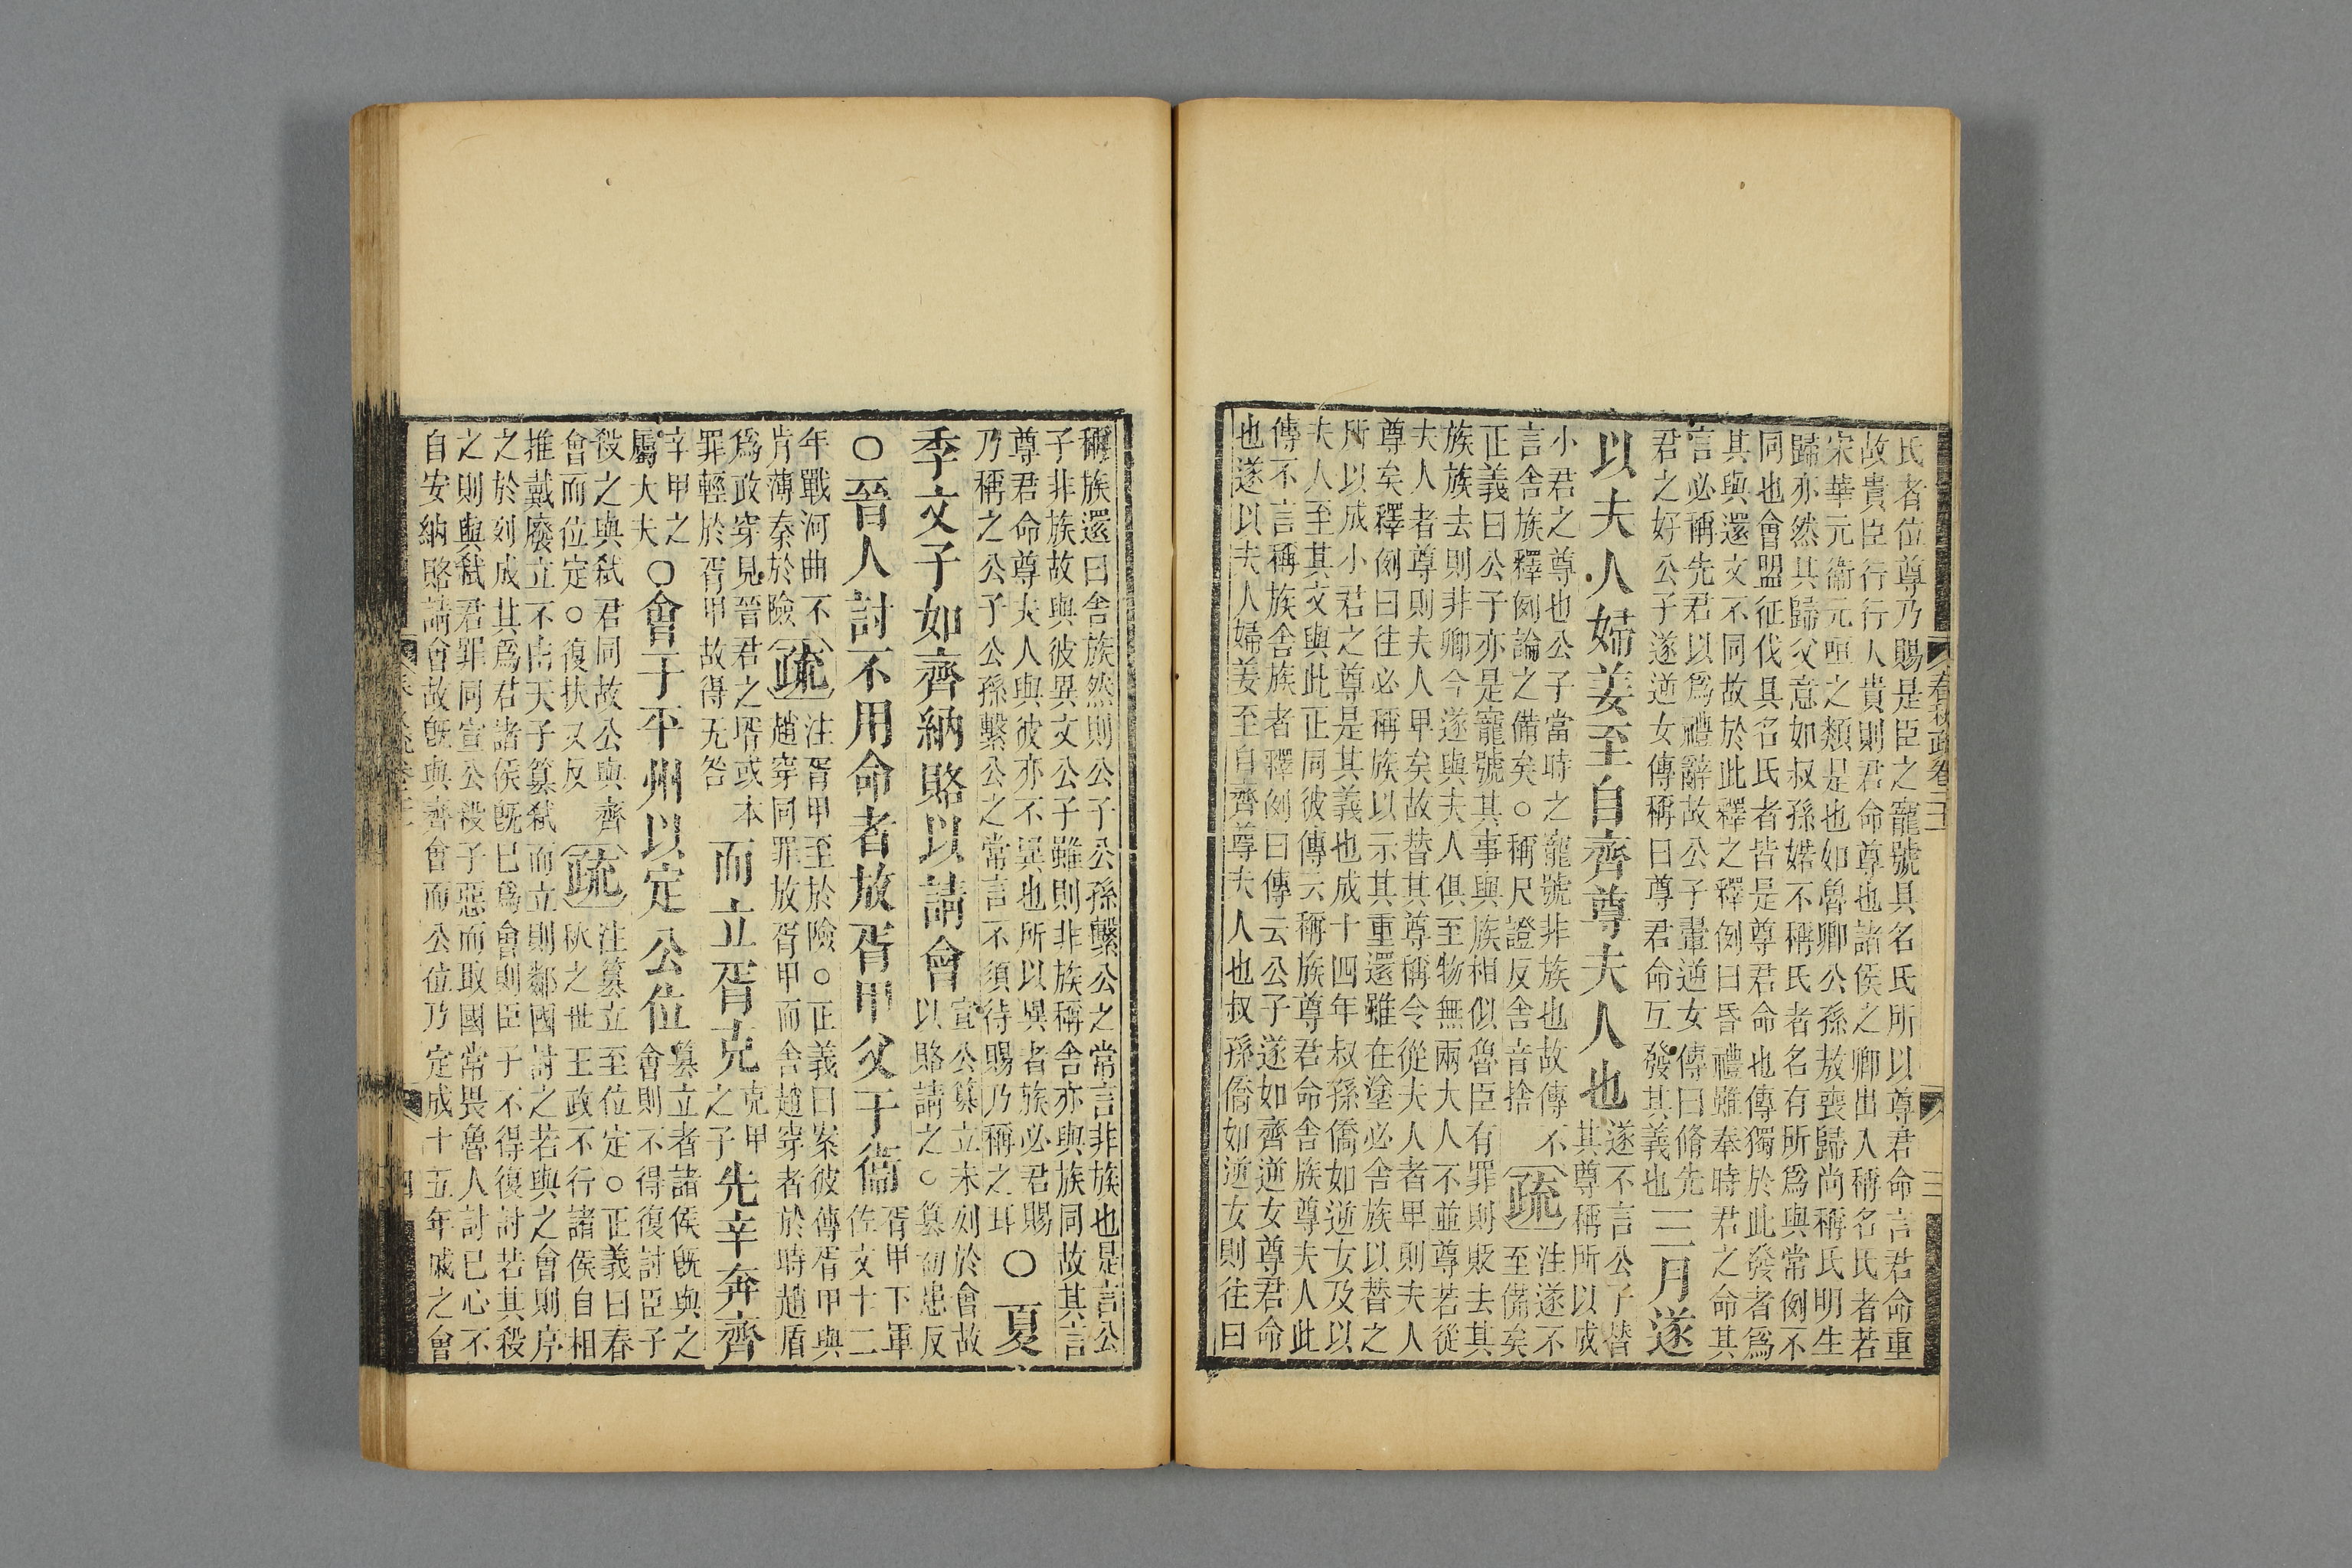 氏者位尊乃賜是臣之寵號具名氏所以尊君命言君命重
故貴臣行行人貴則君命尊也諸侯之卿出入稱名氏者若
宋華元衞元咺之類是也如魯卿公孫敖喪歸尚稱氏明生
歸亦然其歸父意如叔孫婼不稱氏者名有所爲與常例不
同也會盟征伐具名氏者皆是尊君命也傳獨於此發者爲
其與還文不同故於此釋之釋例曰昏禮雖奉時君之命其
言必稱先君以爲禮辭故公子翬逆女傳曰脩先
君之好公子遂逆女傳稱曰尊君命互發其義也
三月遂
以夫人婦姜至自齊尊夫人也
遂不言公子替
其尊稱所以成
小君之尊也公子當時之寵號非族也故傳不
言舍族釋例論之備矣○稱尺證反舍音捨
疏
注遂不
至備矣
正義曰公子亦是寵號其事與族相似魯臣有罪則貶去其
族族去則非卿今遂與夫人俱至物無兩大人不並尊若從
夫人者尊則夫人卑矣故替其尊稱令從夫人者卑則夫人
尊矣釋例曰往必稱族以示其重還雖在塗必舍族以替之
所以成小君之尊是其義也成十四年叔孫僑如逆女及以
夫人至其文與此正同彼傳云稱族尊君命舍族尊夫人此
傳不言稱族舍族者釋例曰傳云公子遂如齊逆女尊君命
也遂以夫人婦姜至自齊尊夫人也叔孫僑如逆女則往曰
稱族還曰舍族然則公子公孫繫公之常言非族也是言公
子非族故與彼異文公子雖則非族稱舍亦與族同故其言
尊君命尊夫人與彼亦不異也所以異者族必君賜
乃稱之公子公孫繫公之常言不須待賜乃稱之耳
○夏
季文子如齊納賂以請會
宣公篡立未列於會故
以賂請之○篡初患反
○晉人討不用命者放胥甲父于衞
胥甲下軍
佐文十二
年戰河曲不
肯薄秦於險
疏
注胥甲至於險○正義曰案彼傳胥甲與
趙穿同罪放胥甲而舍趙穿者於時趙盾
爲政穿見晉君之壻或本
罪輕於胥甲故得无咎
而立胥克
克甲
之子
先辛奔齊
辛甲之
屬大夫
○會于平州以定公位
篡立者諸侯旣與之
會則不得復討臣子
殺之與弒君同故公與齊
會而位定○復扶又反
疏
注篡立至位定○正義曰春
秋之世王政不行諸侯自相
推戴廢立不由天子篡弒而立則鄰國討之若與之會則序
之於列成其爲君諸侯旣已爲會則臣子不得復討若其殺
之則與弒君罪同宣公殺子惡而取國常畏魯人討已心不
自安納賂請會故旣與齊會而公位乃定成十五年戚之會